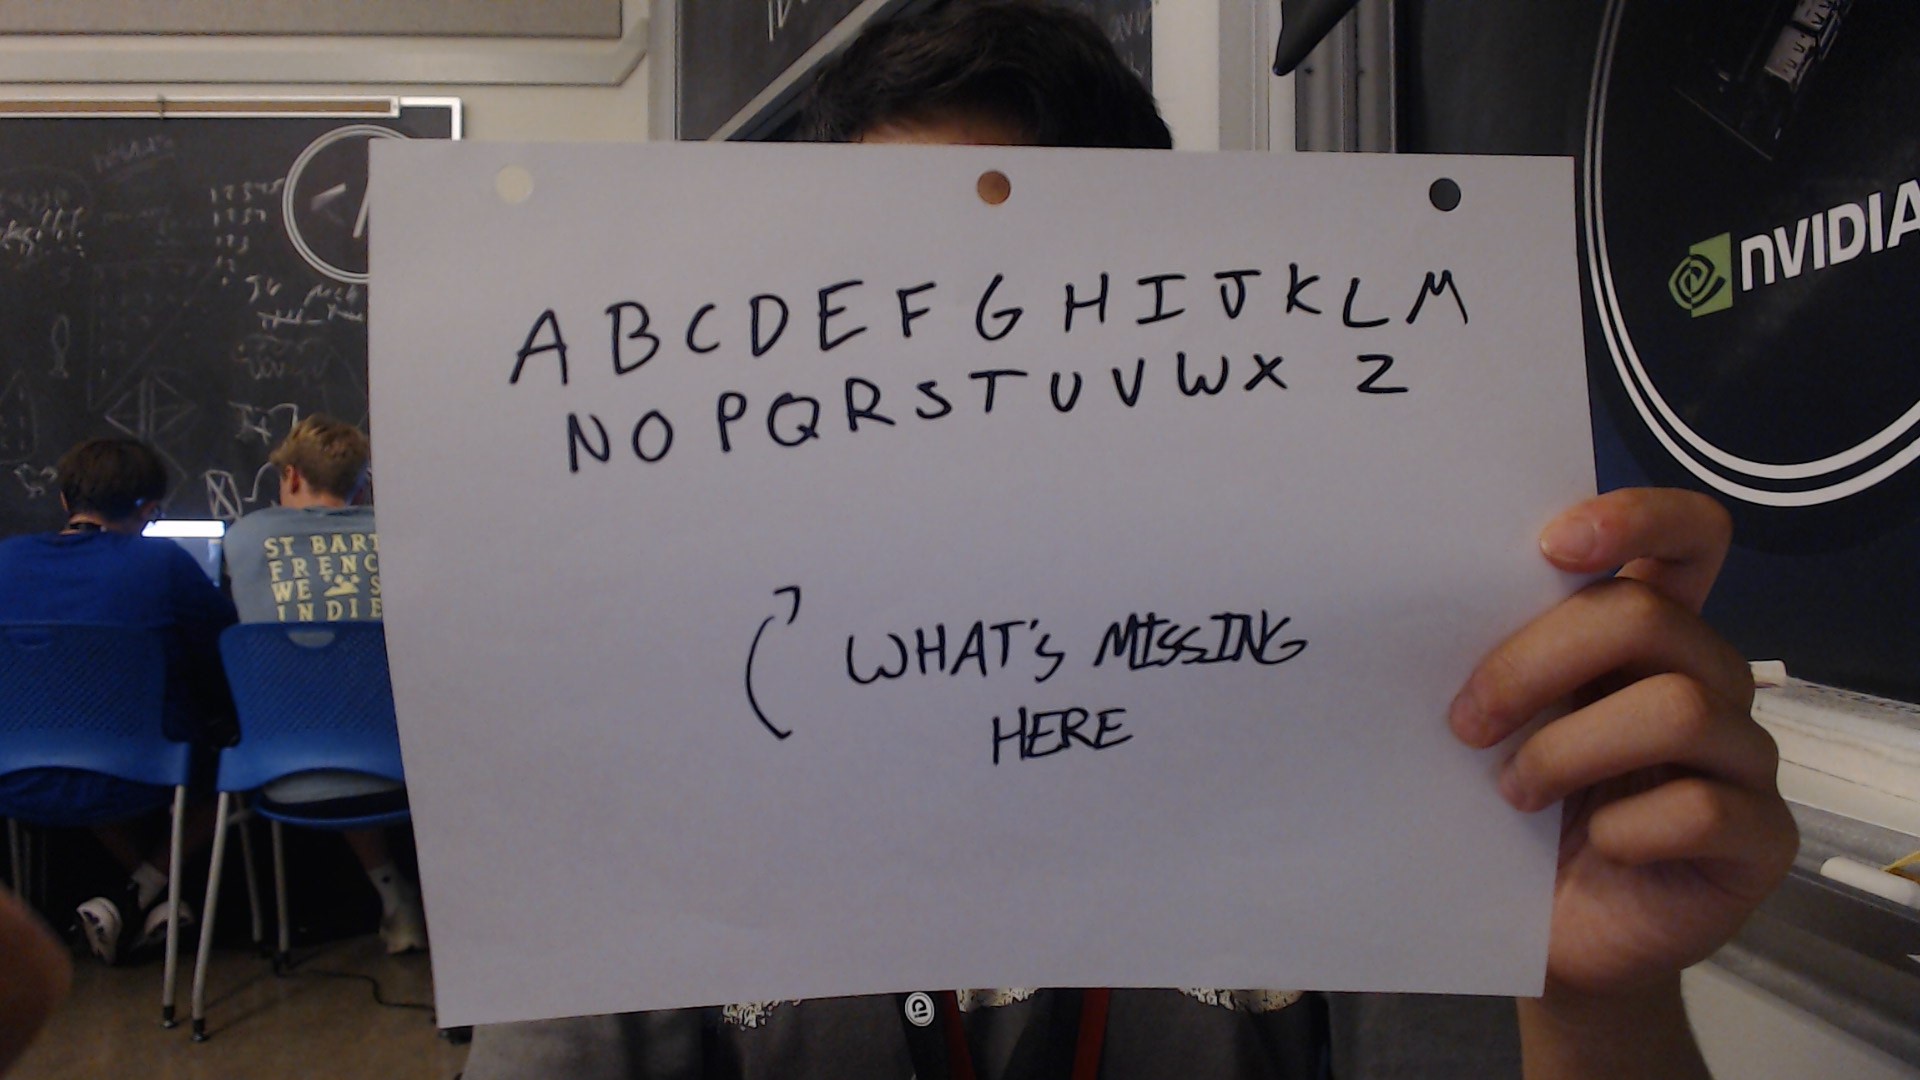 A B C D E F G H I J K L M
N O P Q R S T U V W X Z
WHAT'S MISSING
HERE
NVIDIA
ST BART
FRENC
WE S
INDIE